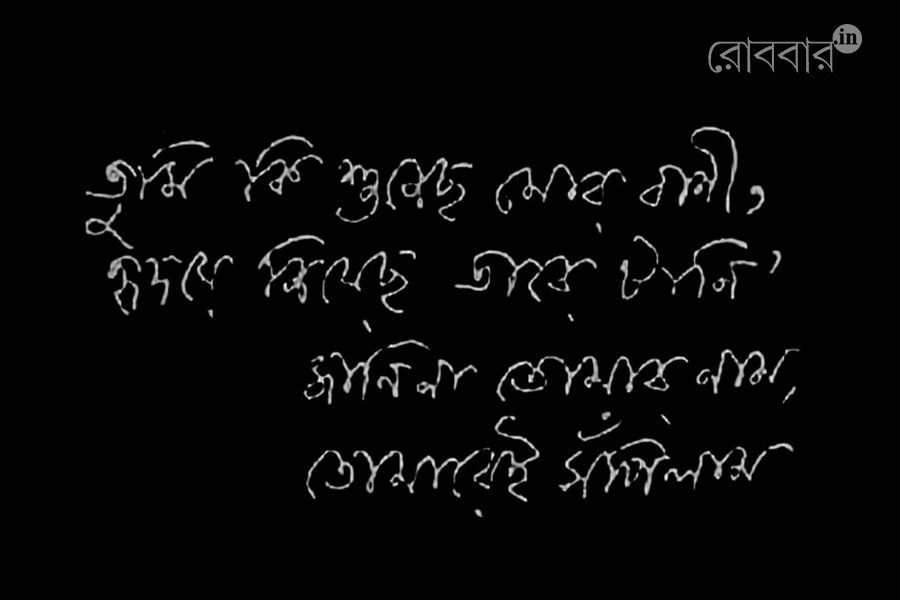 রোববার.in
তুমি কি শুনেছ মোর বাণী,
হৃদয়ে নিয়েছ তারে টানি'
জানি না তোমার নাম,
তোমারেই সঁপিলাম